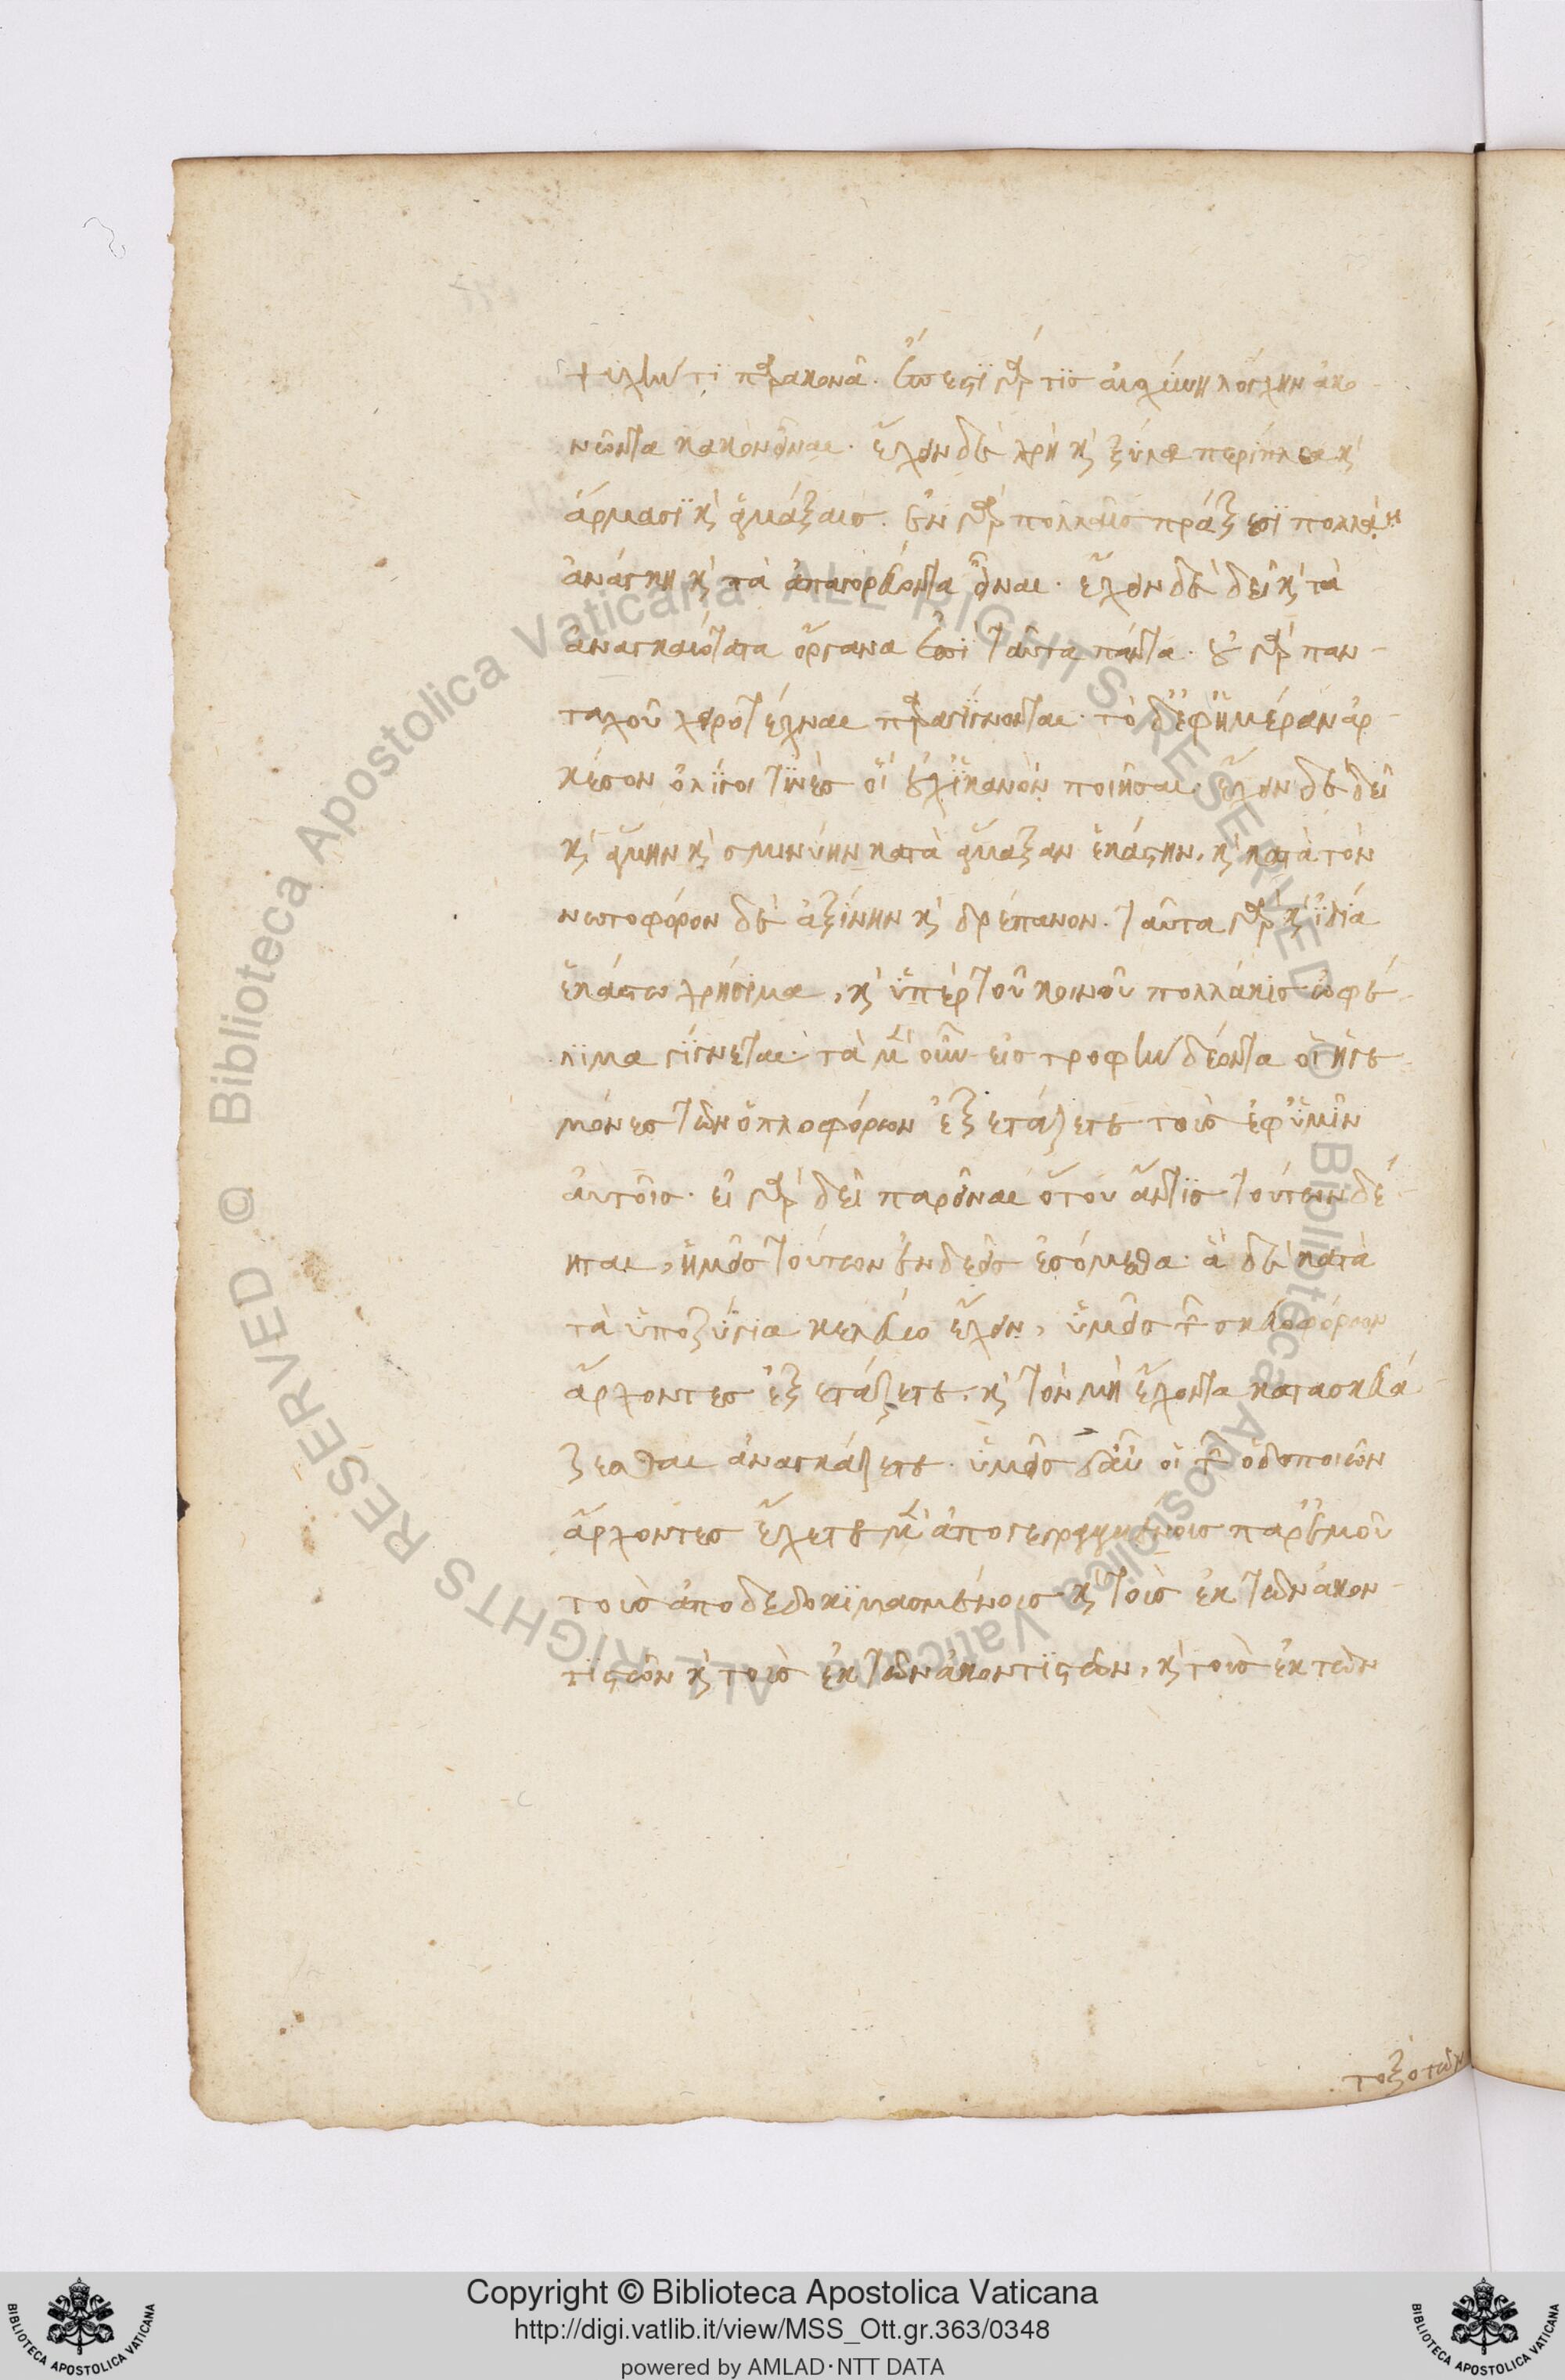 ψυχήν τι παρακονᾷ. ἔπεστι γάρ τις αἰσχύνη λόγχην ἀκο-
νῶντα κακὸν εἶναι. ἔχειν δὲ χρὴ καὶ ξύλα περίπλεα καὶ
ἅρμασι καὶ ἁμάξαις. ἐν γὰρ πολλαῖς πράξεσι πολλὰ
ἀνάγκη καὶ τὰ ἀπαγορεύοντα εἶναι. ἔχειν δὲ δεῖ καὶ τὰ
ἀναγκαιότατα ὄργανα ἐπὶ ταῦτα πάντα. οὐ γὰρ παν-
ταχοῦ χειροτέχναι παραγίγνονται. τὸ δ' ἐφ' ἡμέραν ἀρ-
κέσον ὀλίγοι τινὲς οἳ οὐχ ἱκανὸν ποιῆσαι. ἔχειν δὲ δεῖ
καὶ ἅμην καὶ σμινύην κατὰ ἅμαξαν ἑκάστην, καὶ κατὰ τὸν
νωτοφόρον δὲ ἀξίνην καὶ δρέπανον. ταῦτα γὰρ καὶ ἰδίᾳ
ἑκάστῳ χρήσιμα, καὶ ὑπὲρ τοῦ κοινοῦ πολλάκις ὠφέ-
λιμα γίγνεται. τὰ μὲν οὖν εἰς τροφὴν δέοντα οἱ ἡγε-
μόνες τῶν ὁπλοφόρων ἐξετάζετε τοὺς ἐφ' ὑμῖν
αὐτοῖς. εἰ γὰρ δεῖ παρεῖναι ὅτου ἄν τις τούτων δέ-
ηται, ἡμεῖς τούτων ἐνδεεῖς ἐσόμεθα. ἃ δὲ κατὰ
τὰ ὑποζύγια κελεύω ἔχειν, ὑμεῖς τῶν σκευοφόρων
ἄρχοντες ἐξετάζετε, καὶ τὸν μὴ ἔχοντα κατασκευά-
ζεσθαι ἀναγκάζετε. ὑμεῖς δ' αὖ οἱ τῶν ὁδοποιῶν
ἄρχοντες ἔχετε μὲν ἀπογεγραμμένους παρ' ἐμοῦ
τοὺς ἀποδεδοκιμασμένους καὶ τοὺς ἐκ τῶν ἀκον-
τιστῶν καὶ τοὺς ἐκ τῶν ἀκοντιστῶν, καὶ τοὺς ἐκ τῶν
τοξοτῶν
Copyright © Biblioteca Apostolica Vaticana
http://digi.vatlib.it/view/MSS_Ott.gr.363/0348
powered by AMLAD·NTT DATA